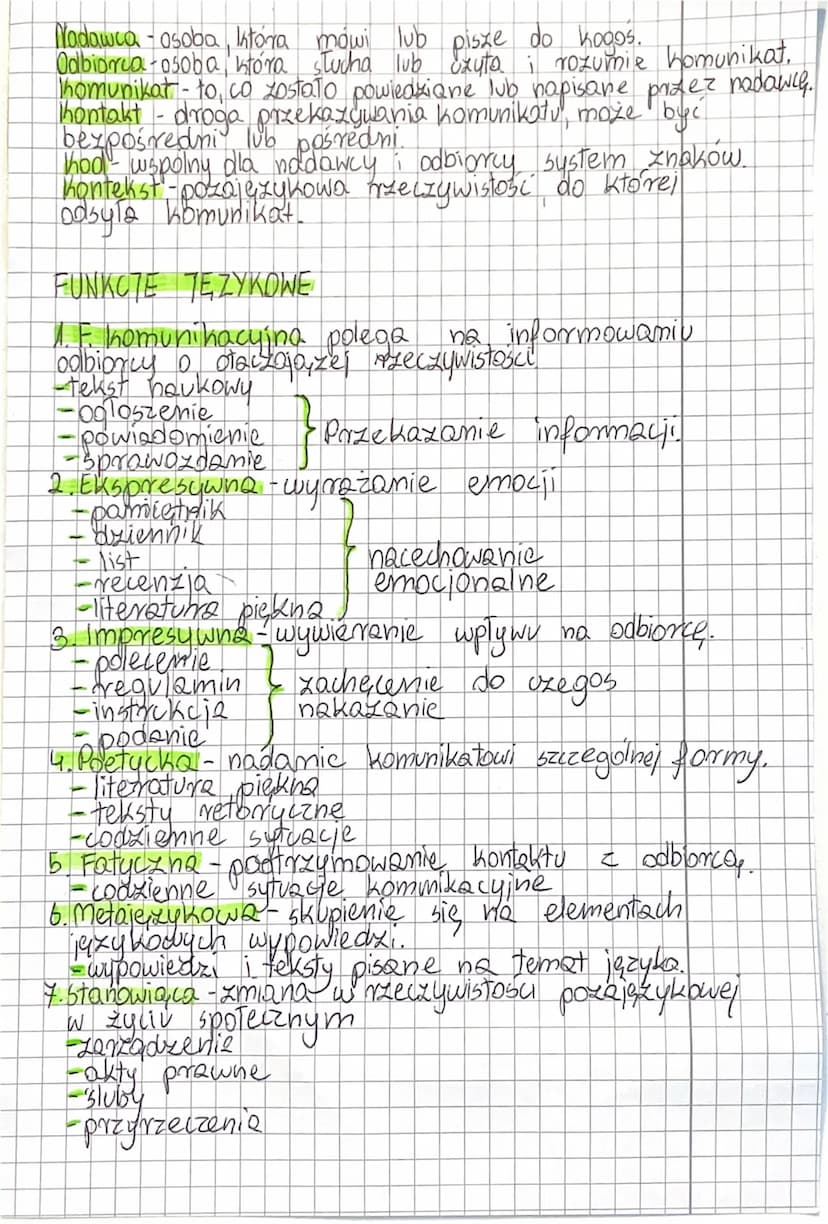 Nadawca - osoba, która mówi lub pisze do kogoś.
Odbiorca - osoba, która słucha lub czyta i rozumie komunikat.
Komunikat - to, co zostało powiedziane lub napisane przez nadawcę.
Kontakt - droga przekazywania komunikatu, może być
bezpośredni lub pośredni.
Kod - wspólny dla nadawcy i odbiorcy system znaków.
Kontekst - pozajęzykowa rzeczywistość, do której
odsyła komunikat.
FUNKCJE JĘZYKOWE
1. F komunikacyjna polega na informowaniu
odbiorcy o otaczającej rzeczywistości
- tekst naukowy
- ogłoszenie
- powiadomienie } Przekazanie informacji
- sprawozdanie
2. Ekspresywna - wyrażanie emocji
- pamiętnik
- dziennik
- list } nacechowanie
- recenzja emocjonalne
- literatura piękna
3. Impresywna - wywieranie wpływu na odbiorcę.
- polecenie
- regulamin } zachęcenie do czegoś
- instrukcja nakazanie
- podanie
4. Poetycka - nadanie komunikatowi szczególnej formy.
- literatura piękna
- teksty retoryczne
- codzienne sytuacje
5. Fatyczna - podtrzymowanie kontaktu z odbiorcą.
- codzienne sytuacje komunikacyjne
6. Metajęzykowa - skupienie się na elementach
językowych wypowiedzi.
- wypowiedzi i teksty pisane na temat języka.
7. Stanowiąca - zmiana w rzeczywistości pozajęzykowej
w życiu społecznym
- zarządzenia
- akty prawne
- śluby
- przyrzeczenia